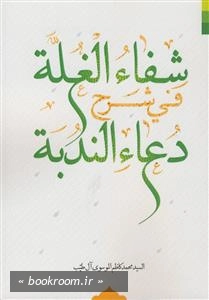 شفاء الغلة
في شرح
دعاء الندبة
السيد محمد كاظم الموسوي آل طيب
« bookroom.ir »